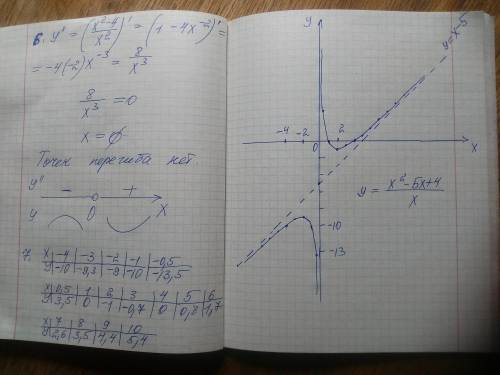 6. y'' = (x²-4/x²)' = (1 - 4x⁻²)' =
= -4(-2)x⁻³ = 8/x³
8/x³ = 0
x = ∅
Точек перегиба нет.
y'' - +
y 0 x
7. x -4 -3 -2 -1 -0,5
y -10 -9,3 -9 -10 -13,5
x 0,5 1 2 3 4 5 6
y 3,5 0 -1 -0,7 0 0,8 1,7
x 7 8 9 10
y 2,6 3,5 4,4 5,4
y
y=x-5
-4 -2 0 2 x
y = x²-5x+4/x
-10
-13